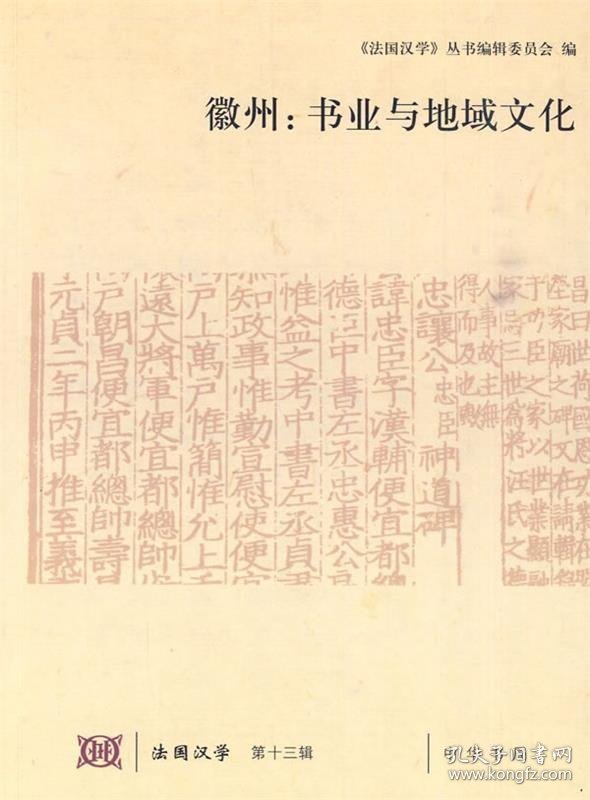 《法国汉学》丛书编辑委员会 编
徽州：书业与地域文化
昌曰世荷國恩功業在
于功臣之家以世業顯
家爲三世爲將汪氏之德
人事故主無
得而及也歟
忠讓公忠臣神道碑
諱忠臣字漢輔便宜都總
德臣中書左丞忠惠公
惟益之考中書左丞貞肅
知政事惟勤宣慰使便宜
上萬戶惟簡惟允上千
遠大將軍便宜都總帥
戶朝昌便宜都總帥壽昌
元貞二年丙申推至義
法国汉学 第十三辑
孔夫子旧书网
www.kongfz.com